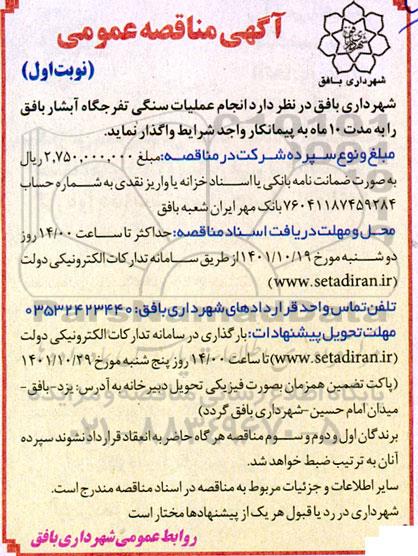 آگهی مناقصه عمومی
شهرداری بافق
(نوبت اول)
شهرداری بافق در نظر دارد انجام عملیات سنگی تفرجگاه آبشار بافق
را به مدت ۱۰ ماه به پیمانکار واجد شرایط واگذار نماید.
مبلغ و نوع سپرده شرکت در مناقصه: مبلغ ۲,۷۵۰,۰۰۰,۰۰۰ ریال
به صورت ضمانت نامه بانکی یا اسناد خزانه یا واریز نقدی به شماره حساب
۷۶۰۴۱۱۸۷۴۵۹۲۸۴ بانک مهر ایران شعبه بافق
محل و مهلت دریافت اسناد مناقصه: حداکثر تا ساعت ۱۴/۰۰ روز
دوشنبه مورخ ۱۴۰۱/۱۰/۱۹ از طریق سامانه تدارکات الکترونیکی دولت
(www.setadiran.ir)
تلفن تماس واحد قراردادهای شهرداری بافق: ۰۳۵۳۲۴۲۳۴۴۰
مهلت تحویل پیشنهادات: بارگذاری در سامانه تدارکات الکترونیکی دولت
(www.setadiran.ir) تا ساعت ۱۴/۰۰ روز پنج شنبه مورخ ۱۴۰۱/۱۰/۲۹
(پاکت تضمین همزمان بصورت فیزیکی تحویل دبیرخانه به آدرس: یزد-بافق-
میدان امام حسین-شهرداری بافق گردد)
برندگان اول و دوم و سوم مناقصه هرگاه حاضر به انعقاد قرارداد نشوند سپرده
آنان به ترتیب ضبط خواهد شد.
سایر اطلاعات و جزئیات مربوط به مناقصه در اسناد مناقصه مندرج است.
شهرداری در رد یا قبول هر یک از پیشنهادها مختار است
روابط عمومی شهرداری بافق